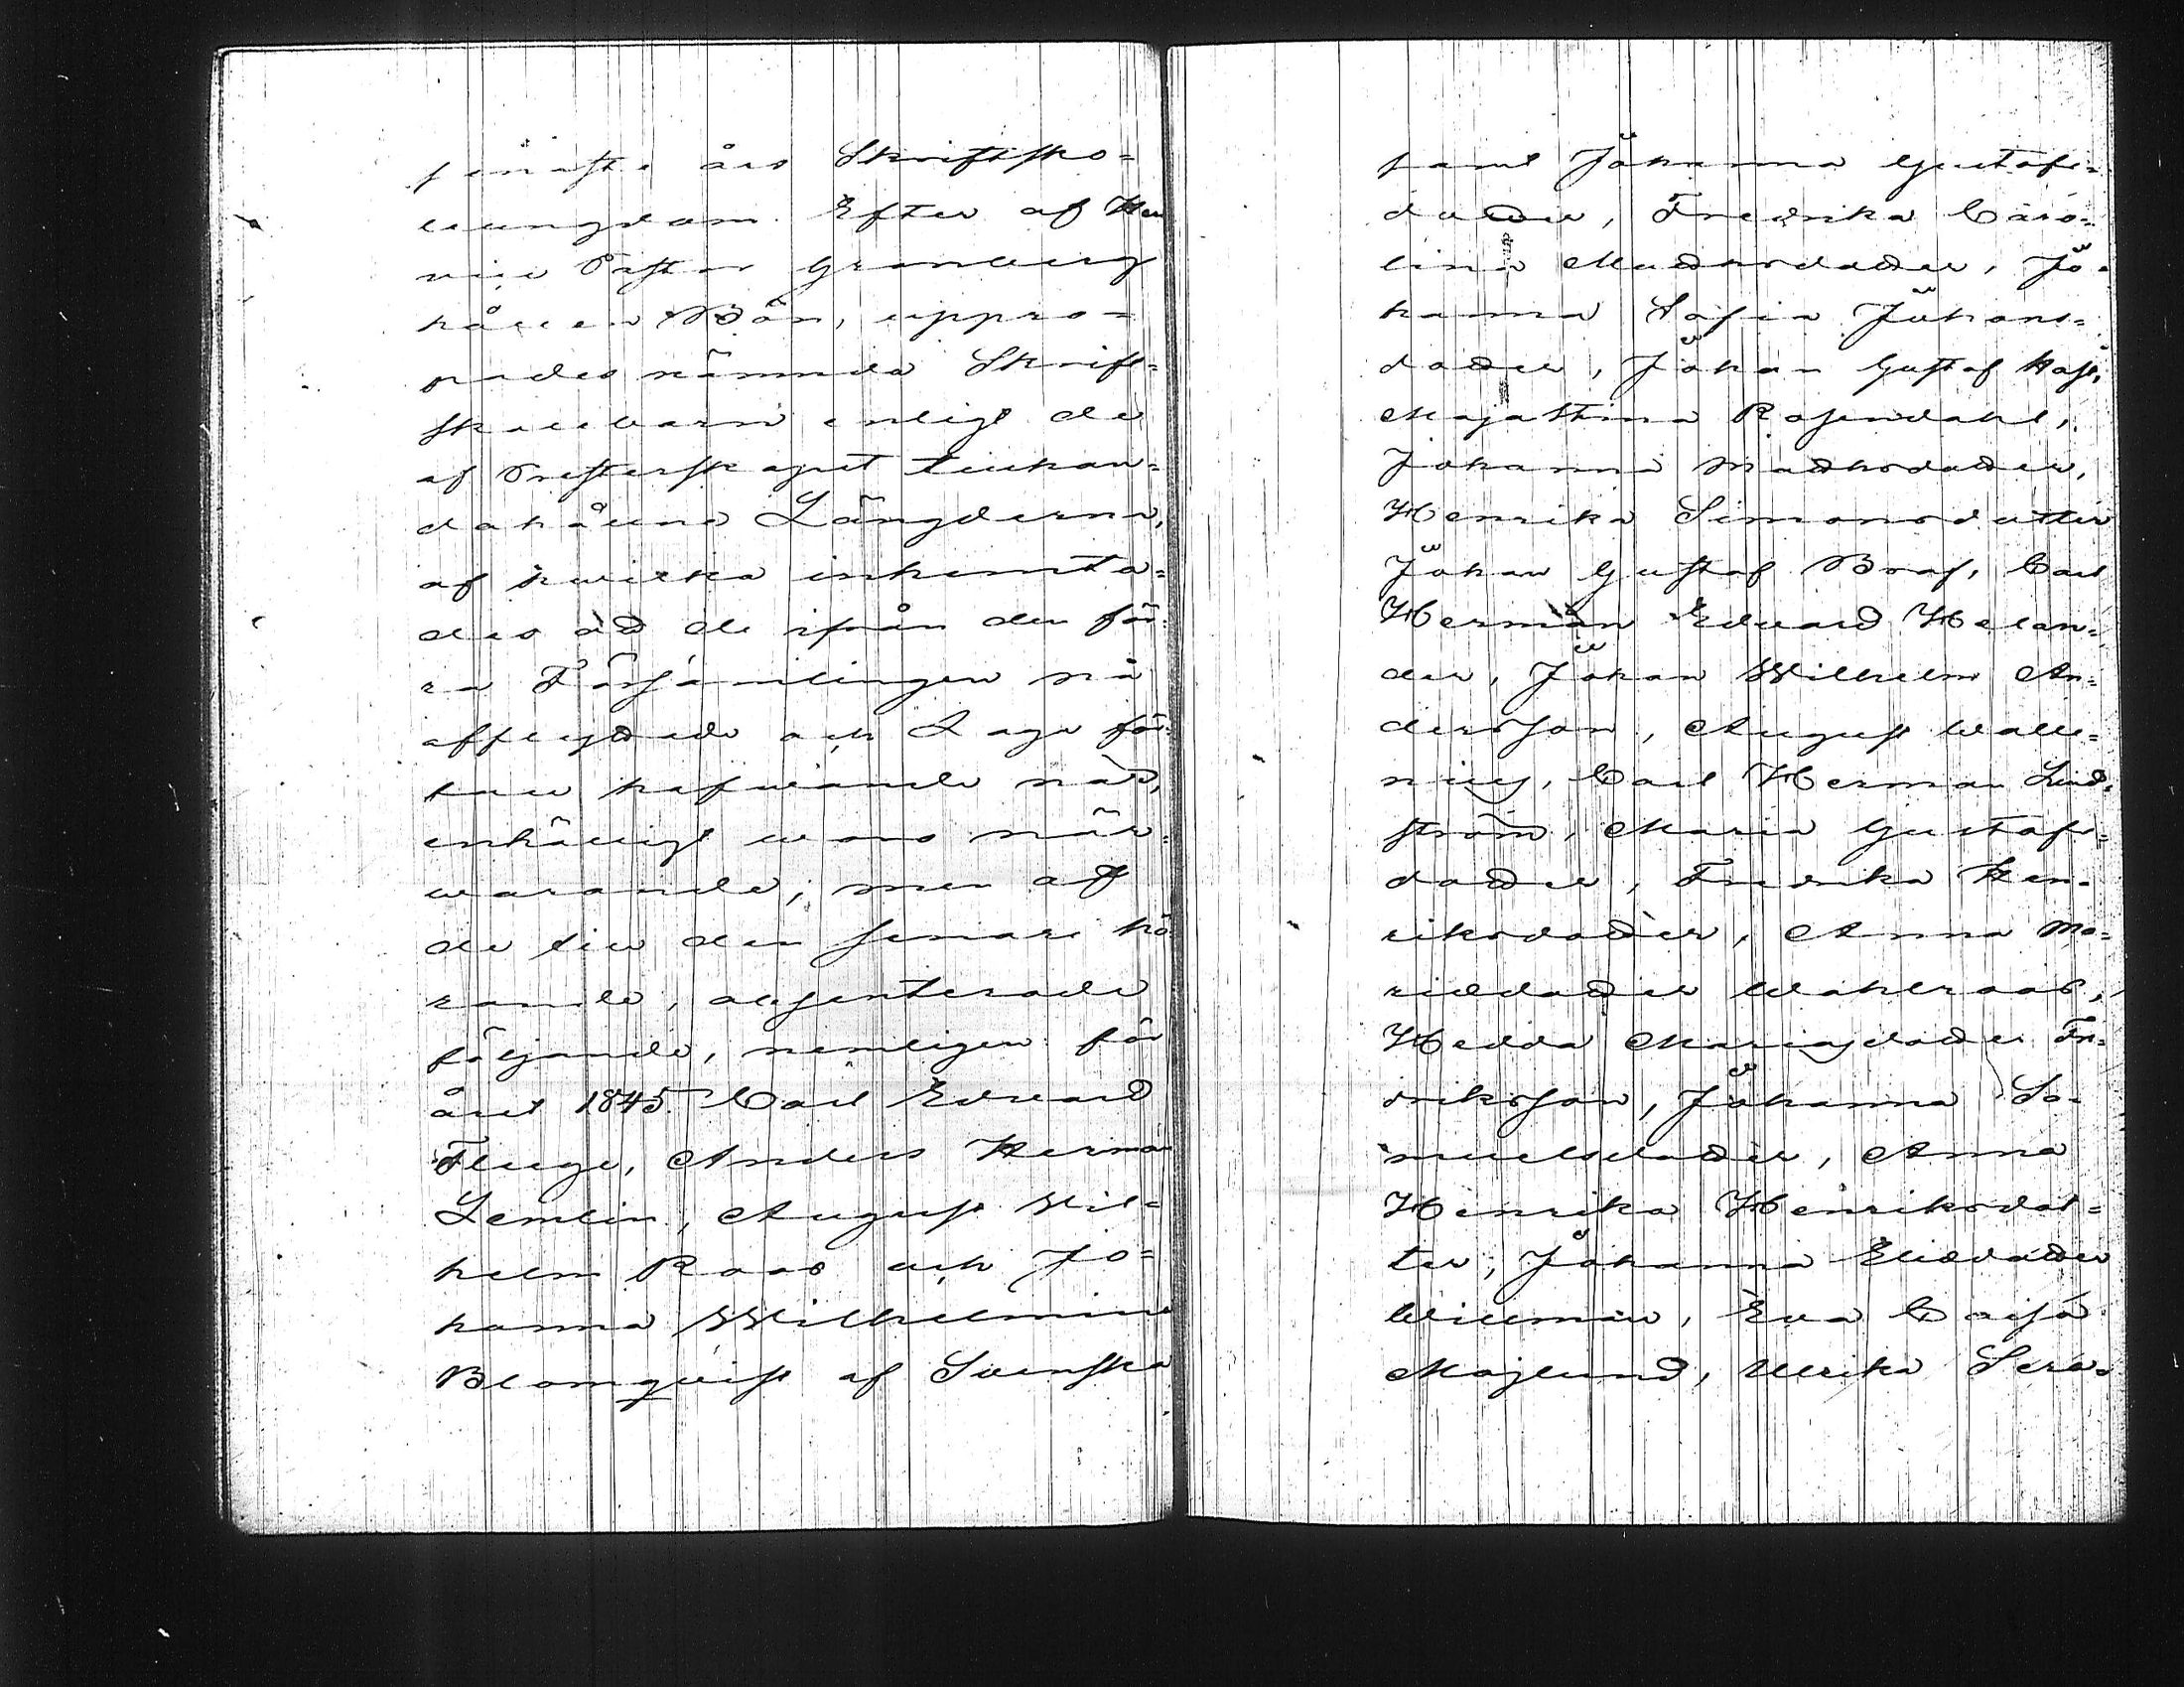 senaste års Skriftsko=
leungdom. Efter af Herr
vice Pastor Granberg
hållen Bön, uppro=
pades nämnde Skrift=
skolebarn enligt de
af Presterskapet tillhan=
dahållne Längderna,
af hwilka inhemta=
des att de ifrån den för=
ra Församlingen nå
afflyttade och Laga för=
fall hafwande när,
enhälligt woro när=
warande; men att
de till den senare hö=
rande, absenterade
följande, nemligen för
året 1845. Carl Edvard
Fluge, Anders Herman
Lemlin, August Wil=
helm Roos och Jo=
hanna Wilhelmina
Blomqvist af Svenska
samt Johanna Gustafs=
dotter, Fredrika Caro=
lina Mattsdotter, Jo=
hanna Sofia Johans=
dotter, Johan Gustaf Hast,
Maja Stina Rosendahl,
Johanna Mattsdotter,
Henrika Simonsdotter
Johan Gustaf Bras, Carl
Herman Edvard Helan=
der, Johan Wilhelm An=
dersson, August Walle=
nius, Carl Herman Lind=
ström, Maria Gustafs=
dotter, Fredrika Hen=
riksdotter, Anna Ma=
riædotter Wahlroos,
Hedda Mariasdotter Fre=
driksson, Johanna Sa=
muelsdotter, Anna
Henrika Henriksdot=
ter, Johanna Eliædotter
Willman, Eva Caisa
Majlund, Ulrika Sera=